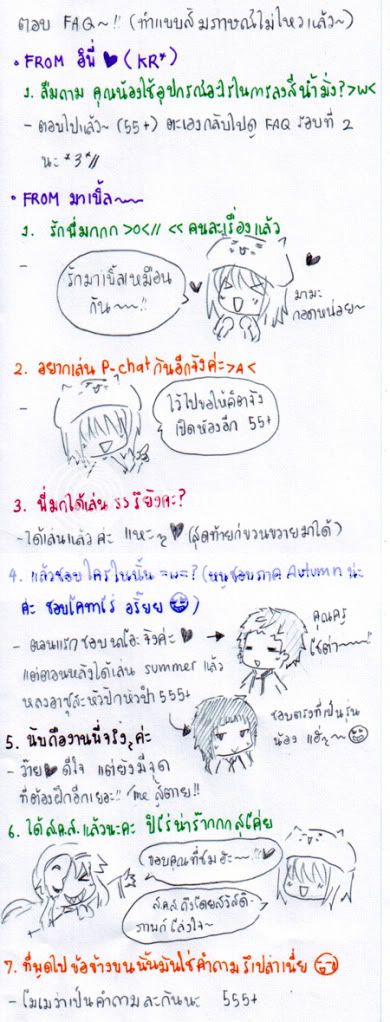 ตอบ FAQ~!! (ทำแบบสัมภาษณ์ไม่ไหวแล้ว~)
• FROM อินี่ ♥ (KR*)
1. ลืมถาม คุณน้องใช้อุปกรณ์อะไรในการลงสีน้ำมั่ง? >w<
- ตอบไปแล้ว~ (55+) ตะเองกลับไปดู FAQ รอบที่ 2
นะ *3*//
• FROM มาเบิ้ล~~
1. รักพี่มกกก >O<// << คนละเรื่องแล้ว
-
รักมาเบิ้ลเหมือน
กัน~~!!
มามะ
กอดหน่อย~
2. อยากเล่น P-chat กันอีกจังค่ะ >A<
-
ไว้ไปขอให้คิตาจัง
เปิดห้องอีก 55+
3. พี่มกได้เล่น SS รึยังคะ?
- ได้เล่นแล้ว ค่ะ แหะๆ ♥ (สุดท้ายก็ขวนขวายมาได้)
4. แล้วชอบใครในนั้น =w=? (หนูชอบภาค Autumn น่ะ
ค่ะ ชอบโคทาโร่ อรั๊ยย)
- ตอนแรกชอบ นาโอะจังค่ะ ♥
แต่ตอนหลังได้เล่น summer แล้ว
หลงอาซุสะหัวปักหัวปำ 555+
คุณครู
โซต่า~~
ชอบตรงที่เป็นรุ่น
น้อง แฮ่ๆ~
5. นับถืองานพี่จริงๆ ค่ะ
- ว๊าย ♥ ดีใจ แต่ยังมีจุด
ที่ต้องฝึกอีกเยอะ!! /me สู้ตาย!!
6. ได้ ส.ค.ส. แล้วนะคะ ปิโร่น่าร๊ากกกสุโค่ย
ขอบคุณที่ชมฮะ~~!! ♥
ส.ค.ส ถึงโดยสวัสดิ-
ภาพก็โล่งใจ~
7. ที่พูดไปข้อข้างบนนั้นมันใช่คำถามรึเปล่าเนี่ย
- โมเมว่าเป็นคำถามละกันนะ 555+